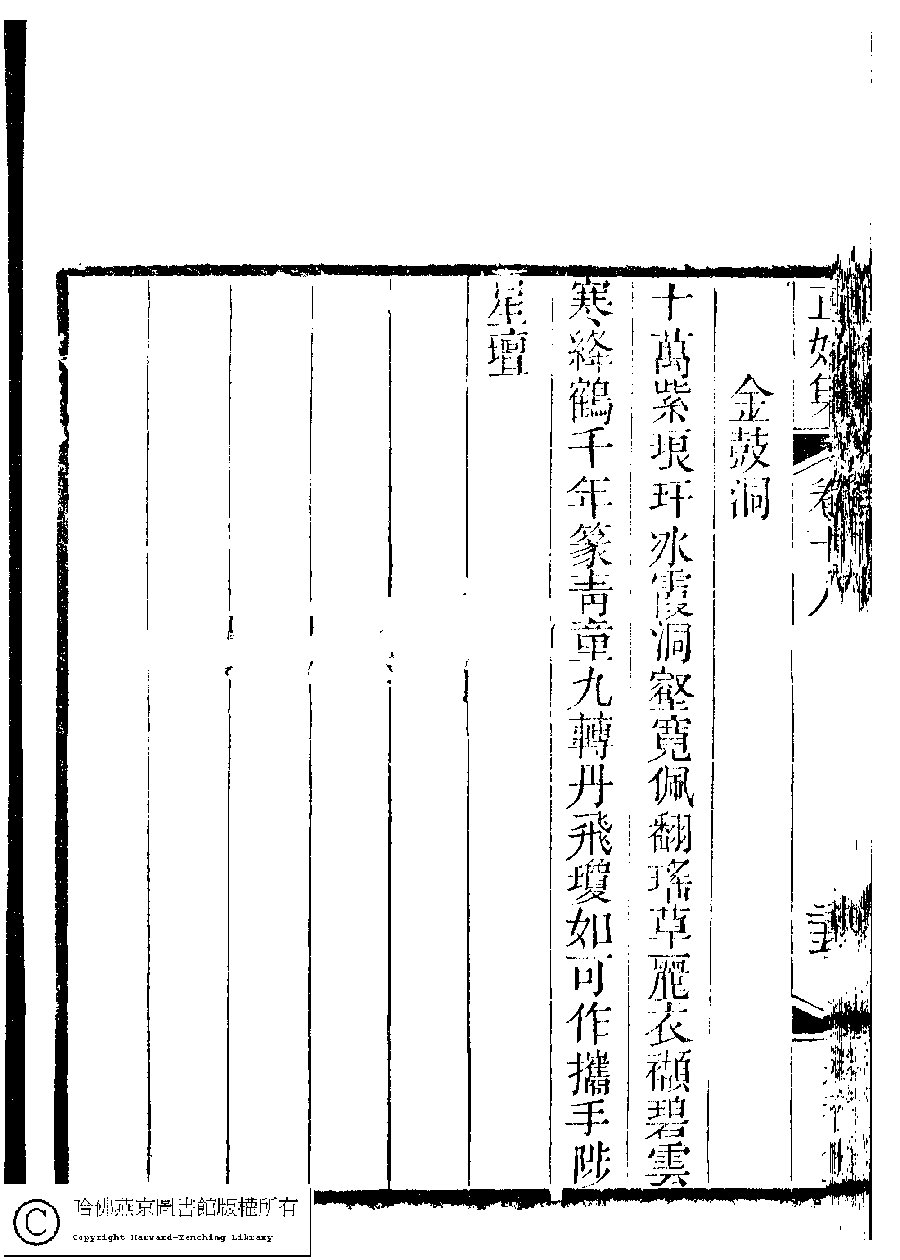 金鼓洞
十萬紫琅玕氷霞洞壑寛佩翻瑤草麗衣襭碧雲
寒絳鶴千年篆靑童九轉丹飛瓊如可作攜手陟
星壇
哈佛燕京圖書館版權所有
Copyright Harvard-Yenching Library